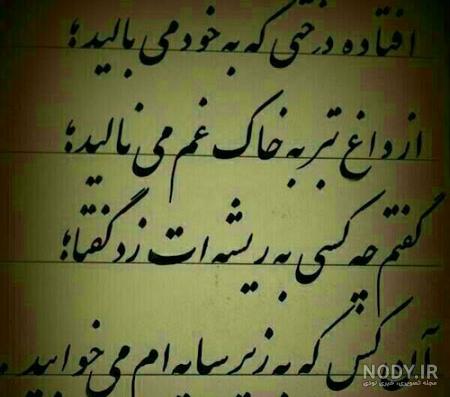 افتاده درختی که به خود می بالید؛
از داغ تبر به خاک غم می نالید؛
گفتم چه کسی به ریشه ات زد گفتا؛
آن کس که به زیر سایه ام می خوابید.
NODY.IR
مجله تصویری، خبری نودی